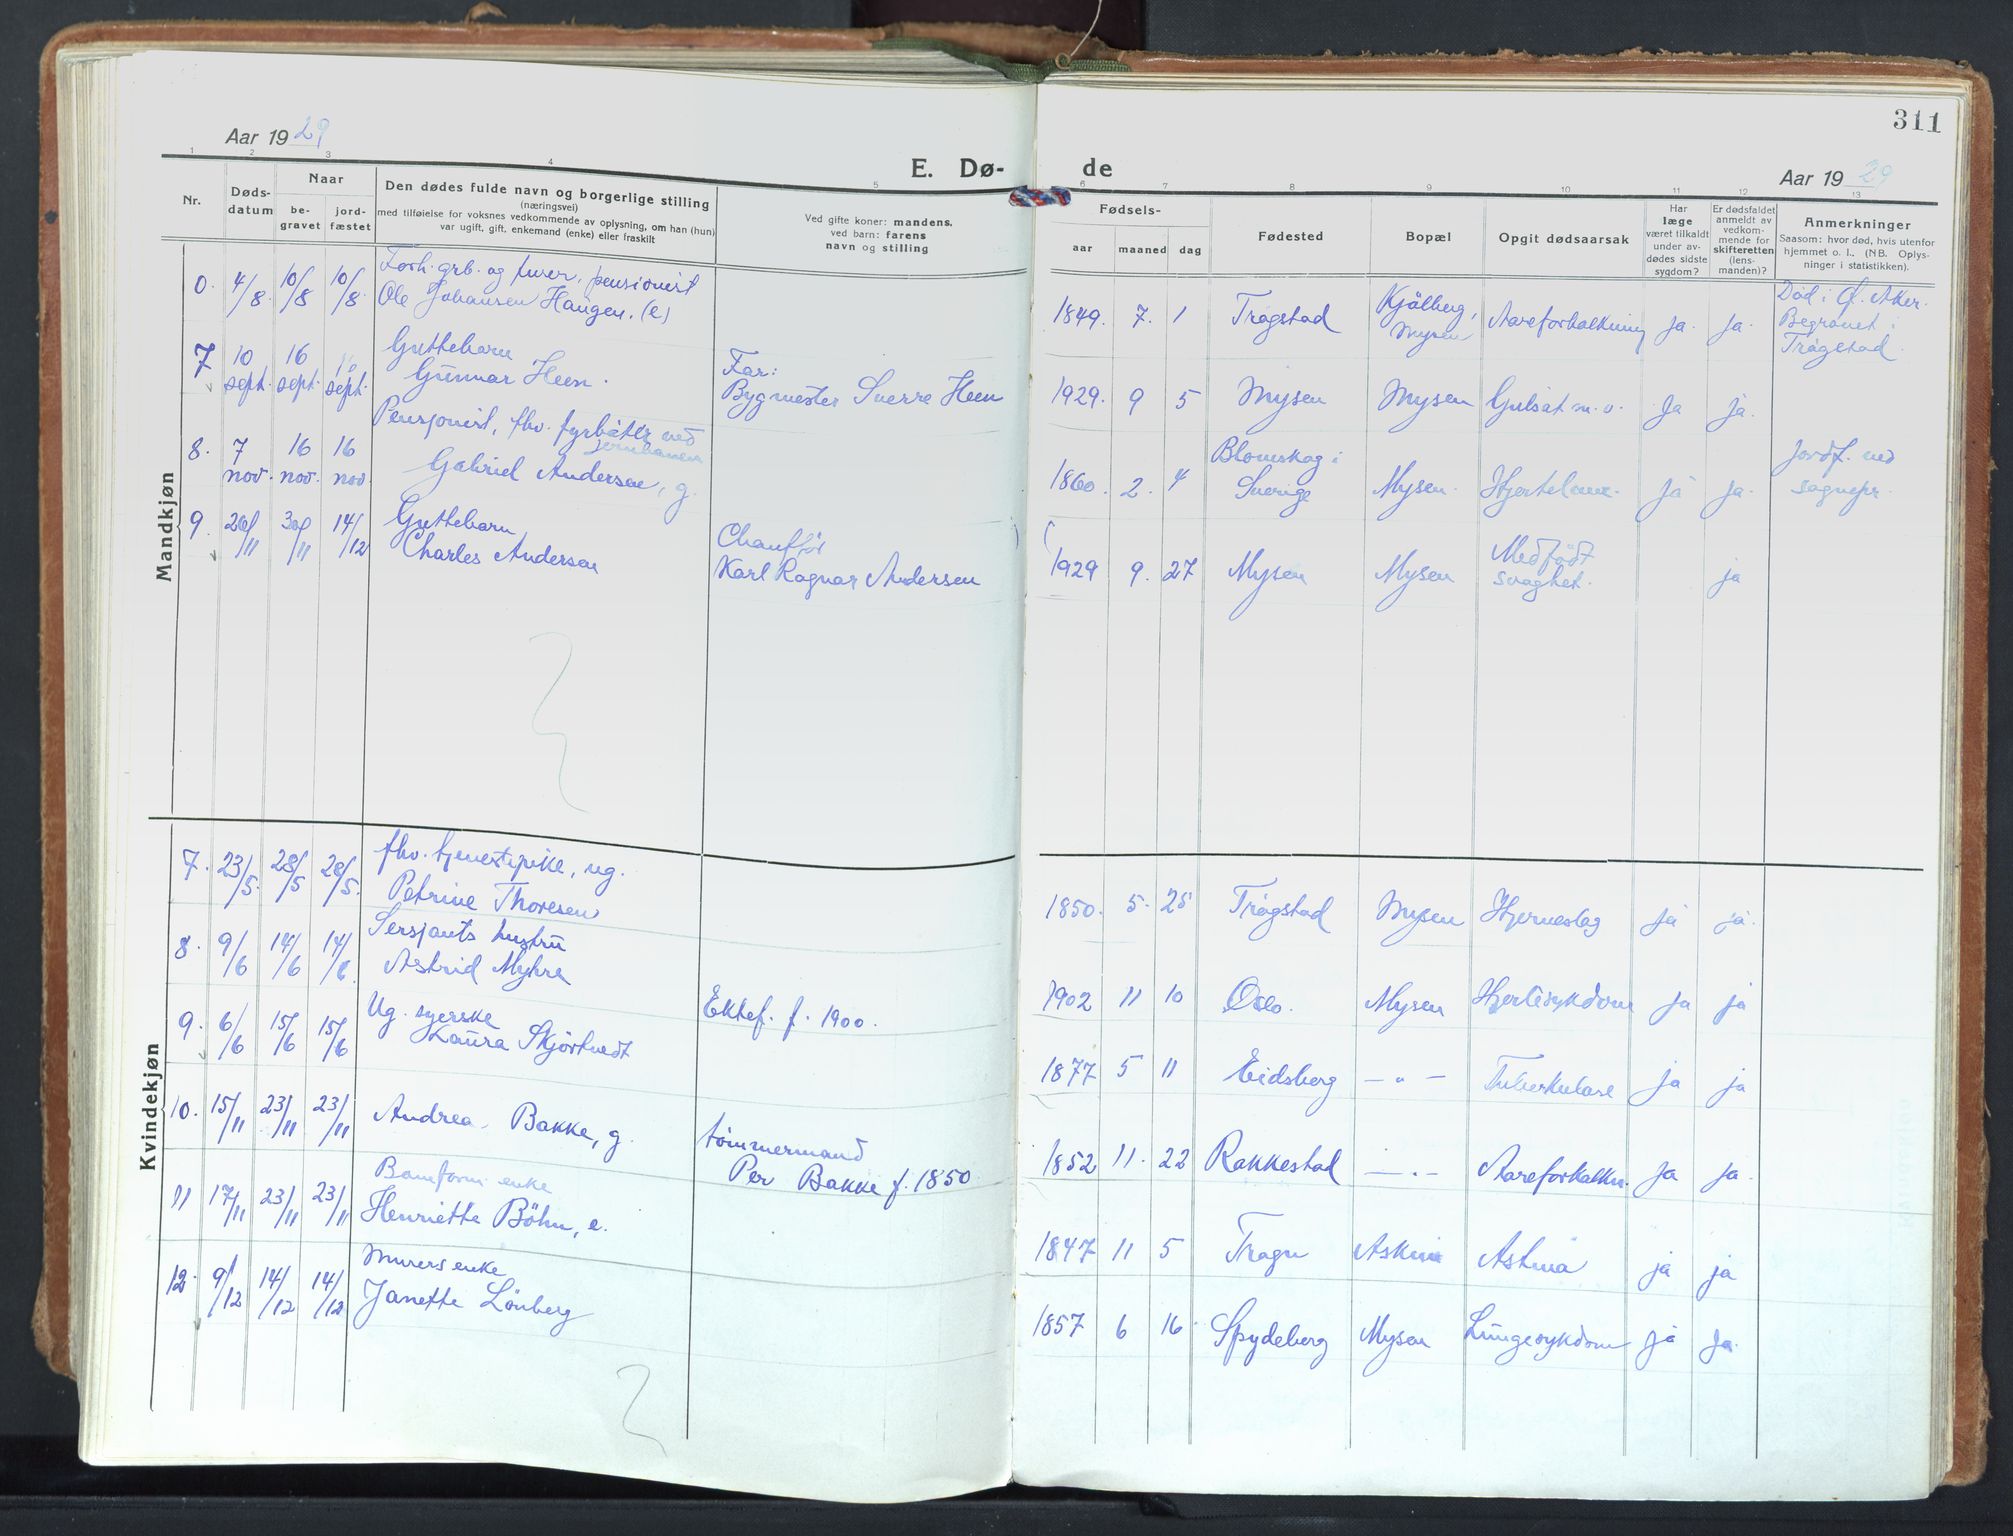 Aar 1929
E. Dø-
1 2 3 4 5
Nr.
Døds-
datum
Naar
be-
gravet
jord-
fæstet
Den dødes fulde navn og borgerlige stilling
(næringsvei)
med tilføielse for voksnes vedkommende av oplysning, om han (hun)
var ugift, gift, enkemand (enke) eller fraskilt
Ved gifte koner: mandens.
ved barn: farens
navn og stilling
Mandkjøn
0. 4/8. 10/8 10/8.
Forh. grb. og furer, pensionist
Ole Johansen Haugen. (e)
7 10 sept. 16 sept. 16 sept.
Guttebarn
Gunnar Heen.
Far:
Bygmester Sverre Heen
8. 7 nov. 16 nov. 16 nov.
Pensjonist, fhv. fyrbøter ved
jernbanen
Gabriel Andersen, g.
9. 26/11 30/11 14/12
Guttebarn
Charles Andersen
Chauffør
Karl Ragnar Andersen
Kvindekjøn
7. 23/5. 28/5 28/5.
fhv. tjenestepike, ug.
Petrine Thoresen
8. 9/6 14/6 14/6.
Sersjants hustru
Astrid Myhre
Ektef. f. 1900.
9. 6/6 15/6 15/6
Ug. syerske
Laura Skjørtvedt
10. 15/11 23/11 23/11
Andrea Bakke, g.
tømmermand
Per Bakke f. 1850.
11 17/11 23/11 23/11
enke
Henriette Böhn, e.
12. 9/12 14/12 14/12
Murers enke
Janette Lönberg
311
de
Aar 1929
6 7 8 9 10 11 12 13
Fødsels-
aar
maaned
dag
Fødested
Bopæl
Opgit dødsaarsak
Har
læge
været tilkaldt
under av-
dødes sidste
sygdom?
Er dødsfaldet
anmeldt av
vedkom-
mende for
skifteretten
(lens-
manden)?
Anmerkninger
Saasom: hvor død, hvis utenfor
hjemmet o. l.. (NB. Oplys-
ninger i statistikken).
1849. 7. 1 Trøgstad Kjølberg, Mysen Aareforkalkning ja. ja.
Død i Ø. Aker.
Begravet i
Trøgstad.
1929. 9 5 Mysen Mysen Gulsåt m. v. ja ja.
1860. 2. 4 Blomskog i Sverige Mysen. ja ja.
Jordf. ved
sognepr.
1929 9. 27 Mysen Mysen Medfødt svaghet. ja
1850. 5. 25 Trøgstad Mysen Hjerneslag ja ja.
1902 11 10 Oslo. Mysen Hjertesykdom ja ja
1877 5 11 Eidsberg — " — Tuberkulose ja ja
1852 11. 22 Rakkestad — " — Aareforkalkn. ja ja.
1847 11 5 Trøgst. Askim Astma ja ja
1857 6 16. Spydeberg Mysen Lungesykdom ja ja.